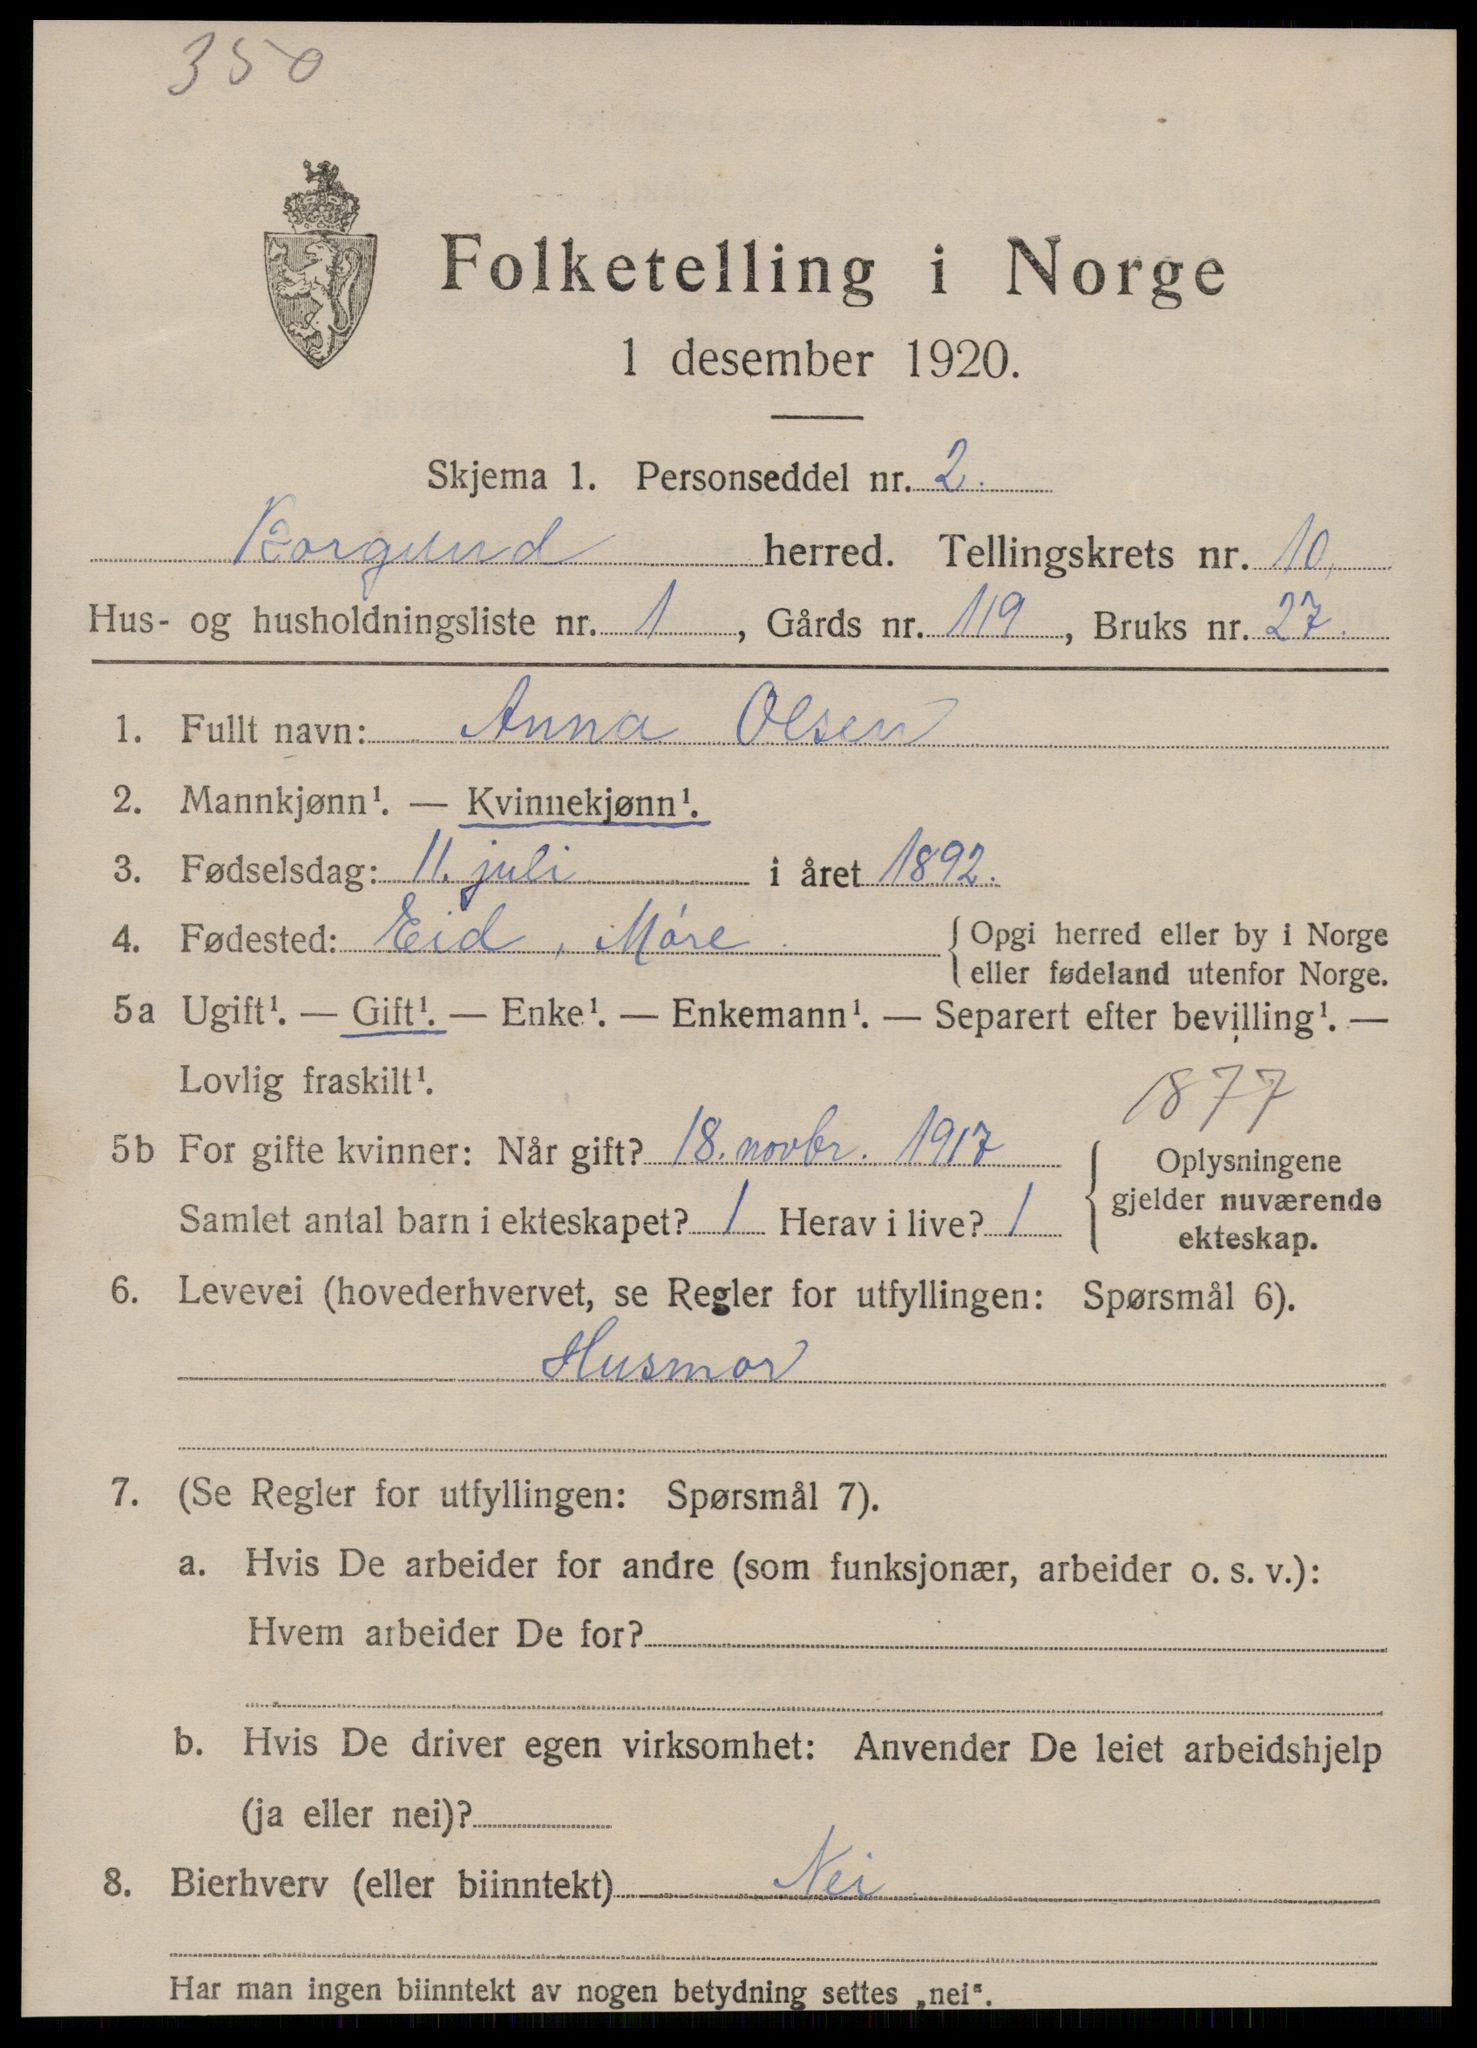 350
Folketelling i Norge
1 desember 1920.
Skjema 1. Personseddel nr. 2.
Borgund herred. Tellingskrets nr. 10,
Hus- og husholdningsliste nr. 1, Gårds nr. 119, Bruks nr. 27.
1. Fullt navn: Anna Olsen
2. Mannkjønn¹. — Kvinnekjønn¹.
3. Fødselsdag: 11. juli i året 1892.
4. Fødested: Eid, Møre { Opgi herred eller by i Norge
eller fødeland utenfor Norge.
5a Ugift¹. — Gift¹. — Enke¹. — Enkemann¹. — Separert efter bevilling¹. —
Lovlig fraskilt¹.
1877
5b For gifte kvinner: Når gift? 18. novbr. 1917
Samlet antal barn i ekteskapet? 1 Herav i live? 1
{ Oplysningene
gjelder nuværende
ekteskap.
6. Levevei (hovederhvervet, se Regler for utfyllingen: Spørsmål 6).
Husmor
7. (Se Regler for utfyllingen: Spørsmål 7).
a. Hvis De arbeider for andre (som funksjonær, arbeider o. s. v.):
Hvem arbeider De for?
b. Hvis De driver egen virksomhet: Anvender De leiet arbeidshjelp
(ja eller nei)?
8. Bierhverv (eller biinntekt) Nei
Har man ingen biinntekt av nogen betydning settes „nei".